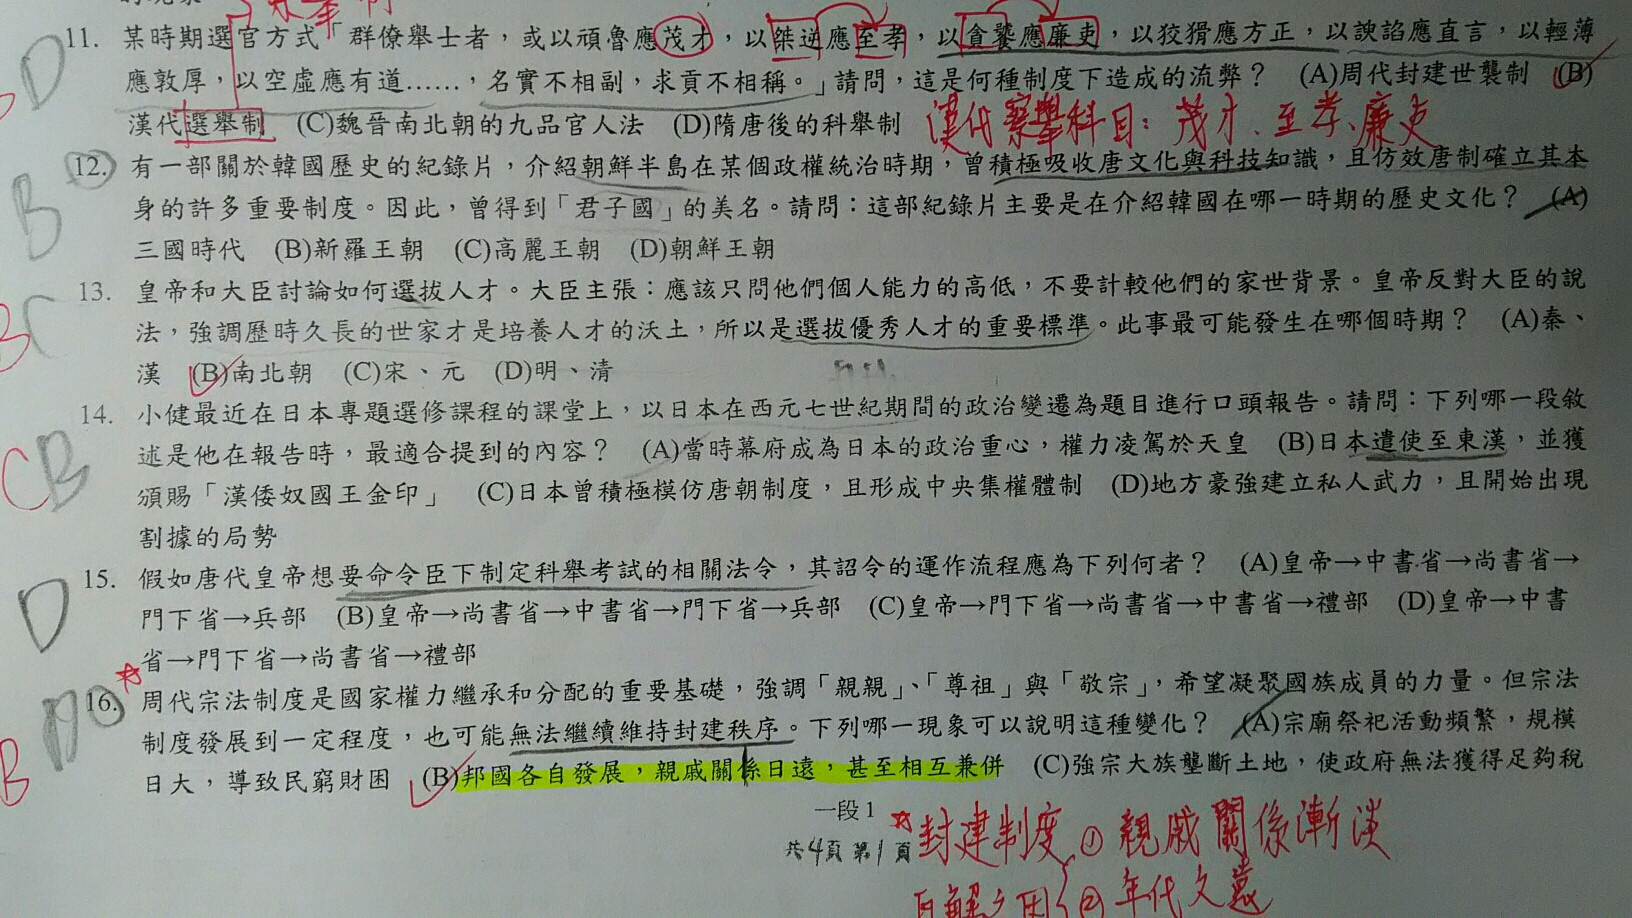 11. 某時期選官方式「群僚舉士者，或以頑魯應茂才，以桀逆應至孝，以貪饕應廉吏，以狡猾應方正，以諛諂應直言，以輕薄
應敦厚，以空虛應有道……，名實不相副，求貢不相稱。」請問，這是何種制度下造成的流弊？ (A)周代封建世襲制 (B)
漢代選舉制 (C)魏晉南北朝的九品官人法 (D)隋唐後的科舉制
漢代察舉科目：茂才、至孝、廉吏
D
12. 有一部關於韓國歷史的紀錄片，介紹朝鮮半島在某個政權統治時期，曾積極吸收唐文化與科技知識，且仿效唐制確立其本
身的許多重要制度。因此，曾得到「君子國」的美名。請問：這部紀錄片主要是在介紹韓國在哪一時期的歷史文化？ (A)
三國時代 (B)新羅王朝 (C)高麗王朝 (D)朝鮮王朝
B
13. 皇帝和大臣討論如何選拔人才。大臣主張：應該只問他們個人能力的高低，不要計較他們的家世背景。皇帝反對大臣的說
法，強調歷時久長的世家才是培養人才的沃土，所以是選拔優秀人才的重要標準。此事最可能發生在哪個時期？ (A)秦、
漢 (B)南北朝 (C)宋、元 (D)明、清
B C
14. 小健最近在日本專題選修課程的課堂上，以日本在西元七世紀期間的政治變遷為題目進行口頭報告。請問：下列哪一段敘
述是他在報告時，最適合提到的內容？ (A)當時幕府成為日本的政治重心，權力凌駕於天皇 (B)日本遣使至東漢，並獲
頒賜「漢倭奴國王金印」 (C)日本曾積極模仿唐朝制度，且形成中央集權體制 (D)地方豪強建立私人武力，且開始出現
割據的局勢
C B
15. 假如唐代皇帝想要命令臣下制定科舉考試的相關法令，其詔令的運作流程應為下列何者？ (A)皇帝→中書省→尚書省→
門下省→兵部 (B)皇帝→尚書省→中書省→門下省→兵部 (C)皇帝→門下省→尚書省→中書省→禮部 (D)皇帝→中書
省→門下省→尚書省→禮部
D
16. 周代宗法制度是國家權力繼承和分配的重要基礎，強調「親親」、「尊祖」與「敬宗」，希望凝聚國族成員的力量。但宗法
制度發展到一定程度，也可能無法繼續維持封建秩序。下列哪一現象可以說明這種變化？ (A)宗廟祭祀活動頻繁，規模
日大，導致民窮財困 (B)邦國各自發展，親戚關係日遠，甚至相互兼併 (C)強宗大族壟斷土地，使政府無法獲得足夠稅
B
一段1
共4頁 第1頁
封建制度 ① 親戚關係漸淡
瓦解之因 ② 年代久遠